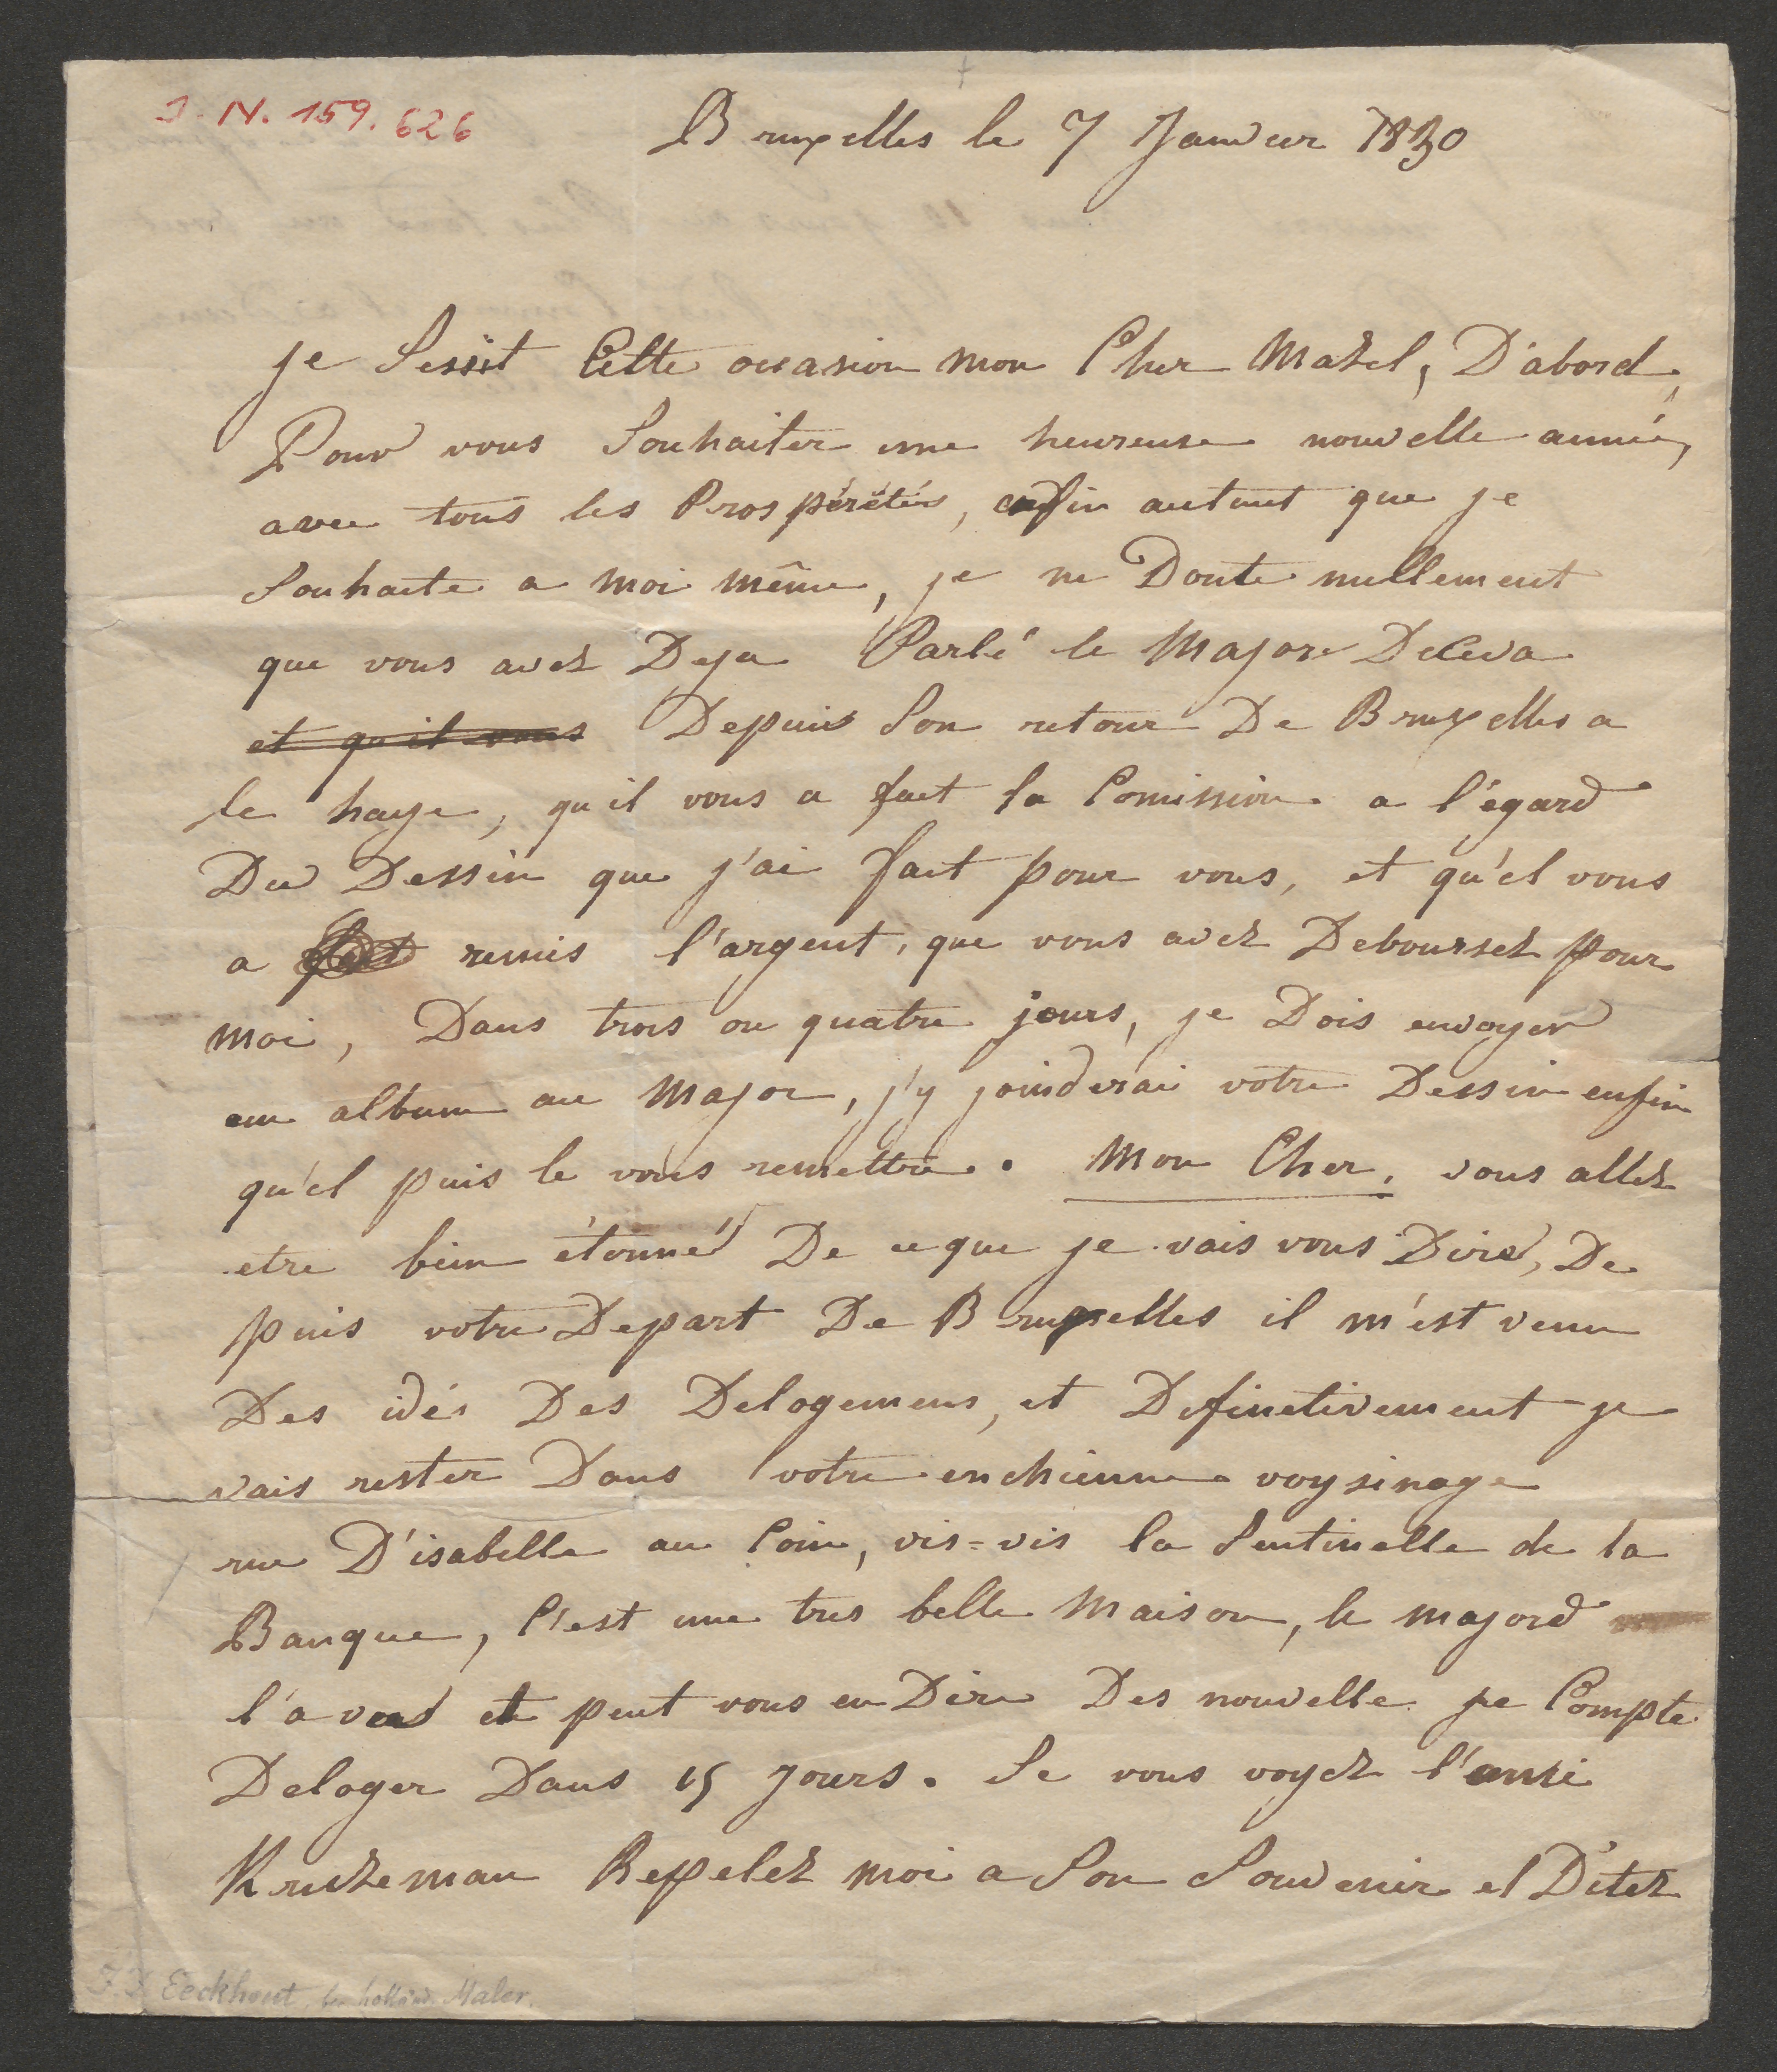 J. N. 159.626
Bruxelles le 7 Janvier 1830
je Sessit Cette occasion mon Cher Mazel, D'abord,
Pour vous Souhaiter une heureuse nouvelle année,
avec tous les Prospérétés, enfin autant que je
Souhaite a moi même, je ne Doute nullement
que vous avez Deja Parlé le Major Deceva
et qu'il vous Depuis Son retour De Bruxelles a
le haye, qu'il vous a fait la Comission a l'égard
Du Dessin que j'ai fait pour vous, et qu'el vous
a fait remis l'argent, que vous avez Deboursez pour
moi, Dans trois ou quatre jours, je Dois envoyer
un album au Major, j'y joinderai votre Dessin enfin
qu'el puis le vous remettre. Mon Cher, vous allez
etre bien étonné De ce que je vais vous Dire, De
puis votre Depart De Bruxelles il m'est venu
Des idés Des Delogemens, et Definetivement je
vais rester Dans votre enchienne voysinage
rue D'isabelle au Coin, vis=vis la Sentinelle de la
Banque, C'est une tres belle Maison, le major
l'a vue et peut vous en Dire Des nouvelle je Compte
Deloger Dans 15 jours. Se vous voyez l'ami
Kruseman Repelez moi a Son Souvenir et Ditez
Eeckhout holländ. Maler.